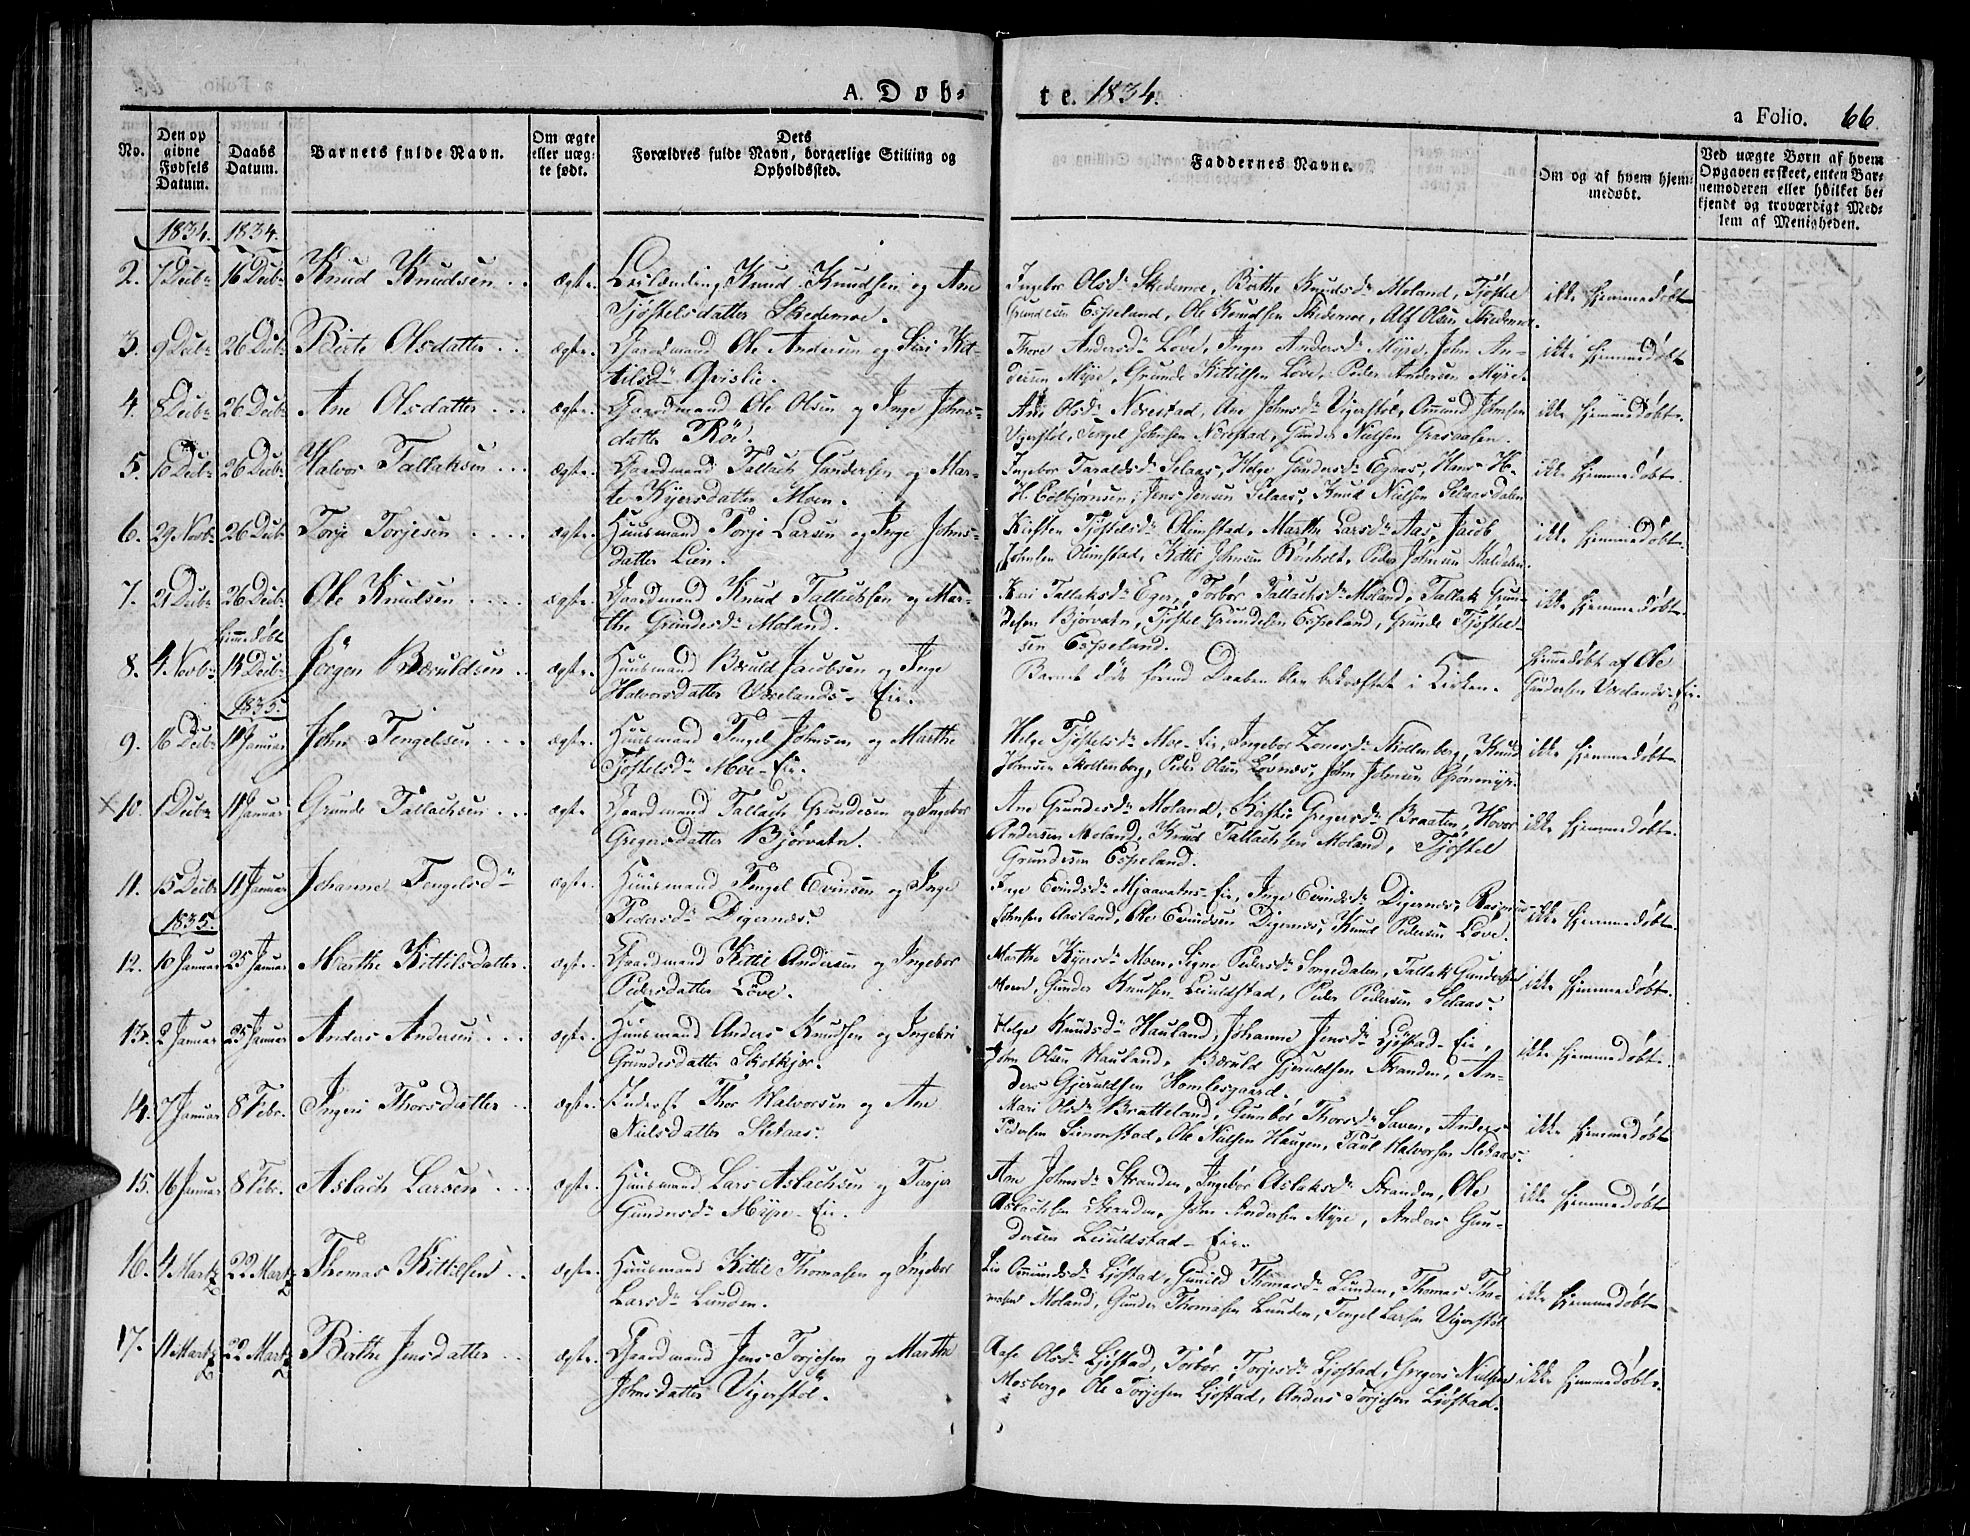 A. Døb-
te. 1834.
a Folio. 66.
No.
Den op
givne
Fødsels
Datum.
Daabs
Datum.
Barnets fulde Navn.
Om ægte
eller uæg-
te født.
Dets
Forældres fulde Navn, borgerlige Stilling og
Opholdssted.
Faddernes Navne.
Om og af hvem hjem-
medøbt.
Ved uægte Børn af hvem
Opgaven er skeet, enten Bar-
nemoderen eller hvilket be-
kjendt og troværdigt Med-
lem af Menigheden.
1834. 1834.
2. 7 Decbr 16 Decbr Knud Knudsen ægte. Knud Knudsen og Ane
Tjøstelsdatter Skedemoe.
Ingebor Olsdr Skedemoe, Birthe Knudsdr Moland, Tjøstel
Grundesen Espeland, Ole Knudsen Skedemoe, Alf Olsen Skedemoe.
ikke hjemmedøbt
3. 9 Decbr 26 Decbr Birte Olsdatter ægte. Gaardmand Ole Andersen og Siri Kit-
tilsdr Grislie.
Thore Andersdr Løve, Inger Andersdr Myre, John An-
dersen Myre, Grunde Kittilsen Løve, Peder Andersen Myre.
ikke hjemmedøbt
4. 8 Decbr 26 Decbr Ane Olsdatter ægte. Gaardmand Ole Olsen og Inge Johns-
datter Röe.
Ane Olsdr Norestad, Ane Johnsdr Vigerstøl, Omund Johnsen
Vigerstøl, Tengel Johnsen Norestad, Gunder Nielsen Graaasen.
ikke hjemmedøbt.
5. 10 Decbr 26 Decbr Halvor Tallaksen ægte. Gaardmand Tallach Gundersen og Mar-
te Kjersdatter Moen.
Ingebor Taraldsdr Selaas, Helge Gundersdr Egaas, Hans H.
H. Esbjørnsen, Jens Jensen Selaas, Knud Nielsen Selaasdalen
ikke hjemmedøbt.
6. 29 Novbr 26 Decbr Torje Torjesen ægte. Huusmand Torje Larsen og Inge Johns-
datter Lien.
Kirsten Tjøstelsdr Olimstad, Marthe Larsdr Aas, Jacob
Johnsen Olimstad, Kittil Johnsen Reinholt, Peder Johnsen Staldalen.
ikke hjemmedøbt.
7. 21 Decbr 26 Decbr Ole Knudsen ægte. Gaardmand Knud Tallachsen og Mar-
the Grundesdr Moland.
Kari Tallaksdr Eger, Torbor Tallachsdr Moland, Tallak Grun-
desen Bjorvatn, Tjøstel Grundesen Espeland, Grunde Tjøstel-
sen Espeland.
ikke hjemmedøbt
hjemmedøbt
8. 4. Novbr 14 Decbr Jørgen Bæruldsen ægte. Huusmand Bæruld Jacobsen og Inge
Halvorsdatter Vrælands-Eie.
Barnet døde førend Daaben blev bekræftet i Kirken.
hjemmedøbt af Ole
Gundersen Vrælands-Eie.
1835.
9. 16 Decbr 11 Januar John Tengelsen ægte. Huusmand Tengel Johnsen og Marthe
Tjøstelsdr Moe-Eie.
Helge Tjøstelsdr Moe-Eie, Ingebor Zonesdr Skollenberg, Knud
Johnsen Skollenberg, Peder Olsen Løvnes, John Johnsen Grønmyr.
ikke hjemmedøbt.
×10. 1 Decbr 11 Januar Grunde Tallachsen ægte. Gaardmand Tallach Grundesen og Ingebor
Gregersdatter Bjørvatn.
Ane Grundesdr Moland, Kirstie Gregersdr Braaten, Hovor
Andersen Moland, Knud Tallachsen Moland, Tjøstel
Grundesen Espeland.
ikke hjemmedøbt.
11. 15 Decbr 11 Januar Johanne Tengelsdr ægte. Huusmand Tengel Evensen og Inge
Pedersdr Digernæs.
Inge Evindsdr Mjaavatns-Eie, Inge Evindsdr Digernæs, Rasmus
Johnsen Aasland, Ole Evindsen Digernæs, Knud Pedersen Løve.
ikke hjemmedøbt.
1835.
12. 10 Januar 25 Januar Marthe Kittilsdatter ægte. Gaardmand Kittil Andersen og Ingebor
Pedersdatter Løve.
Marthe Kjersdr Moen, Signe Pedersdr Songedalen, Tallak Gundersen
Moen, Gunder Knudsen Leiuldstad, Peder Pedersen Selaas.
ikke hjemmedøbt.
13. 2 Januar 25 Januar Anders Andersen ægte. Huusmand Anders Knudsen og Ingebor
Grundesdatter Skotkjær.
Helge Knudsdr Hauland, Johanne Jensdr Ljøstad-Eie,
John Olsen Hauland, Bæruld Gjeruldsen Stranden, An-
ders Gjeruldsen Homlesgaard.
ikke hjemmedøbt.
14. 7 Januar 8 Febr. Ingeri Thorsdatter ægte. Inderst Thor Halvorsen og Ane
Nielsdatter Sletaas.
Mari Olsdr Bratteland, Gunbor Thorsdr Saven, Anders
Pedersen Simonstad, Ole Nielsen Haugen, Paul Halvorsen Sletaas.
ikke hjemmedøbt
15. 16 Januar 8 Febr. Aslach Larsen ægte. Huusmand Lars Aslachsen og Torjer
Gundersdr Myre-Eie.
Ane Johnsdr Stranden, Ingebor Aslaksdr Stranden, Ole
Aslachsen Stranden, John Andersen Myre, Anders Gun-
dersen Leiuldstad-Eie.
ikke hjemmedøbt
16. 4 Martz 22 Martz Thomas Kittilsen ægte. Huusmand Kittil Thomasen og Ingebor
Larsdr Lunden.
Liv Omundsdr Ljøstad, Gunild Thomasdr Lunden, Thomas Tho-
masen Moland, Gunder Thomasen Lunden, Tengel Larsen Vigerstøl
ikke hjemmedøbt
17. 11 Martz 22 Martz Birthe Jensdatter ægte. Gaardmand Jens Torjesen og Marthe
Johnsdatter Vigerstöl.
Aase Olsdr Ljøstad, Torbor Torjesdr Ljøstad, Gregers Nielsen
Mosberg, Ole Torjesen Ljøstad, Anders Torjesen Ljøstad.
ikke hjemmedøbt.